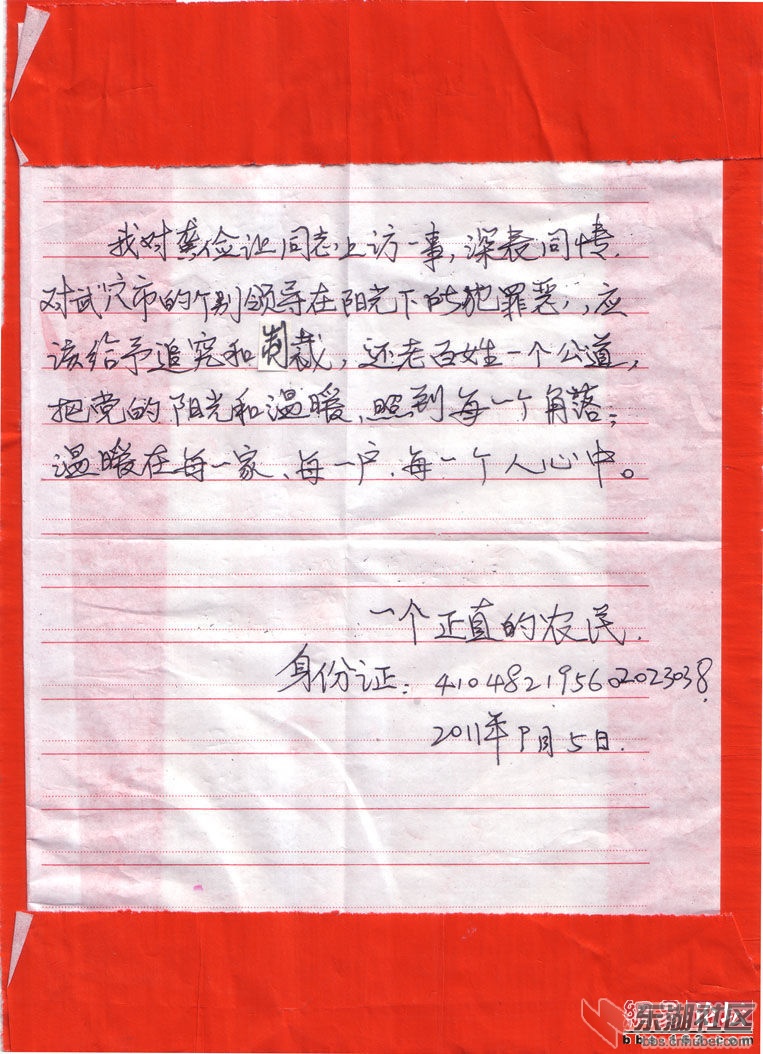 我对龚俭让同志上访一事，深表同情.
对武穴市的个别领导在阳光下所犯罪恶，应
该给予追究和制裁，还老百姓一个公道，
把党的阳光和温暖、照到每一个角落；
温暖在每一家、每一户.每一个人心中。
一个正直的农民.
身份证：410482195602023038.
2011年9月5日.
东湖社区
bbs.cnhubei.com